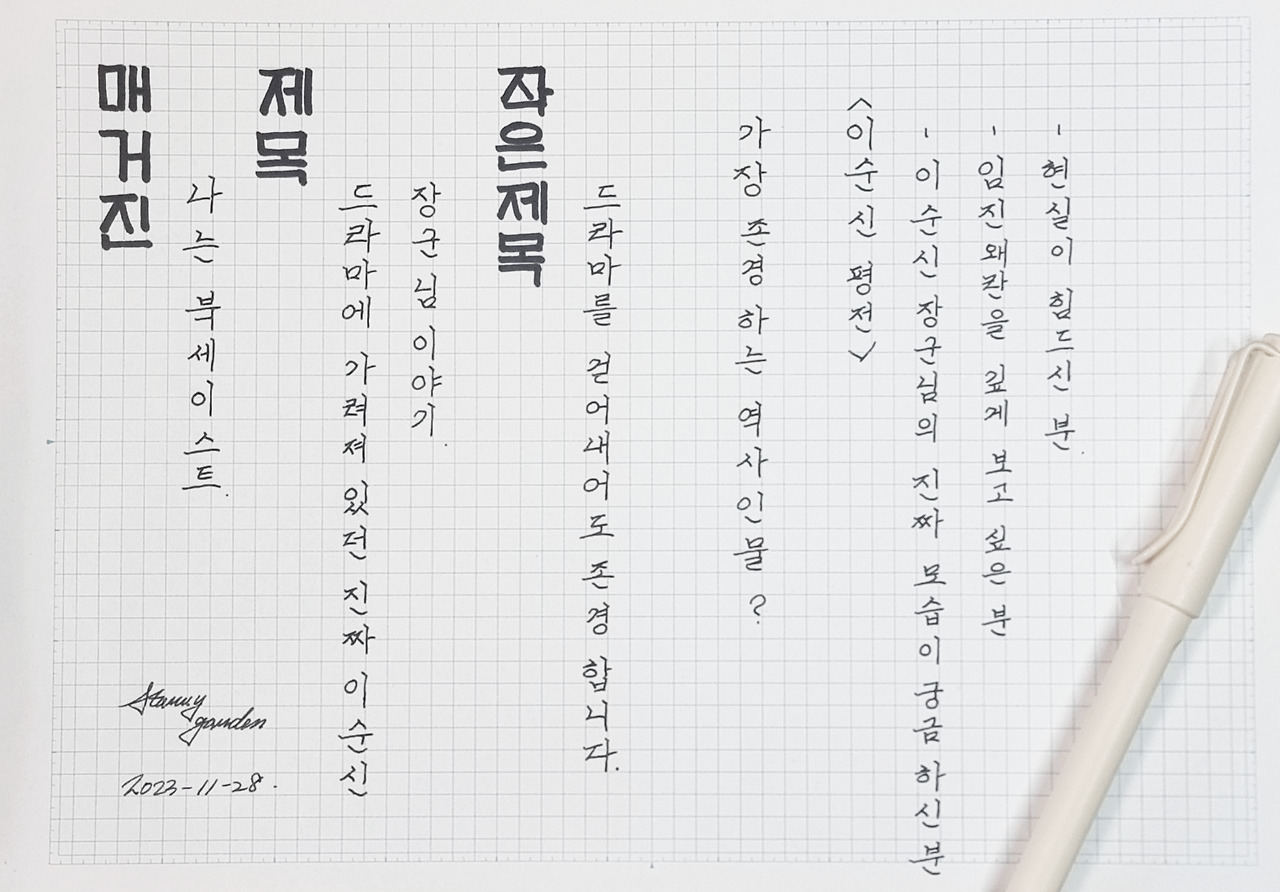 매거진
나는 북세이스트.
제목
드라마에 가려져 있던 진짜 이순신
장군님 이야기.
작은제목
드라마를 걷어내어도 존경 합니다.
가장 존경 하는 역사 인물 ?
<이순신 평전>
- 이순신 장군님의 진짜 모습이 궁금 하신 분
- 임진왜란을 깊게 보고 싶은 분
- 현실이 힘드신 분.
Starry
garden
2023-11-28.